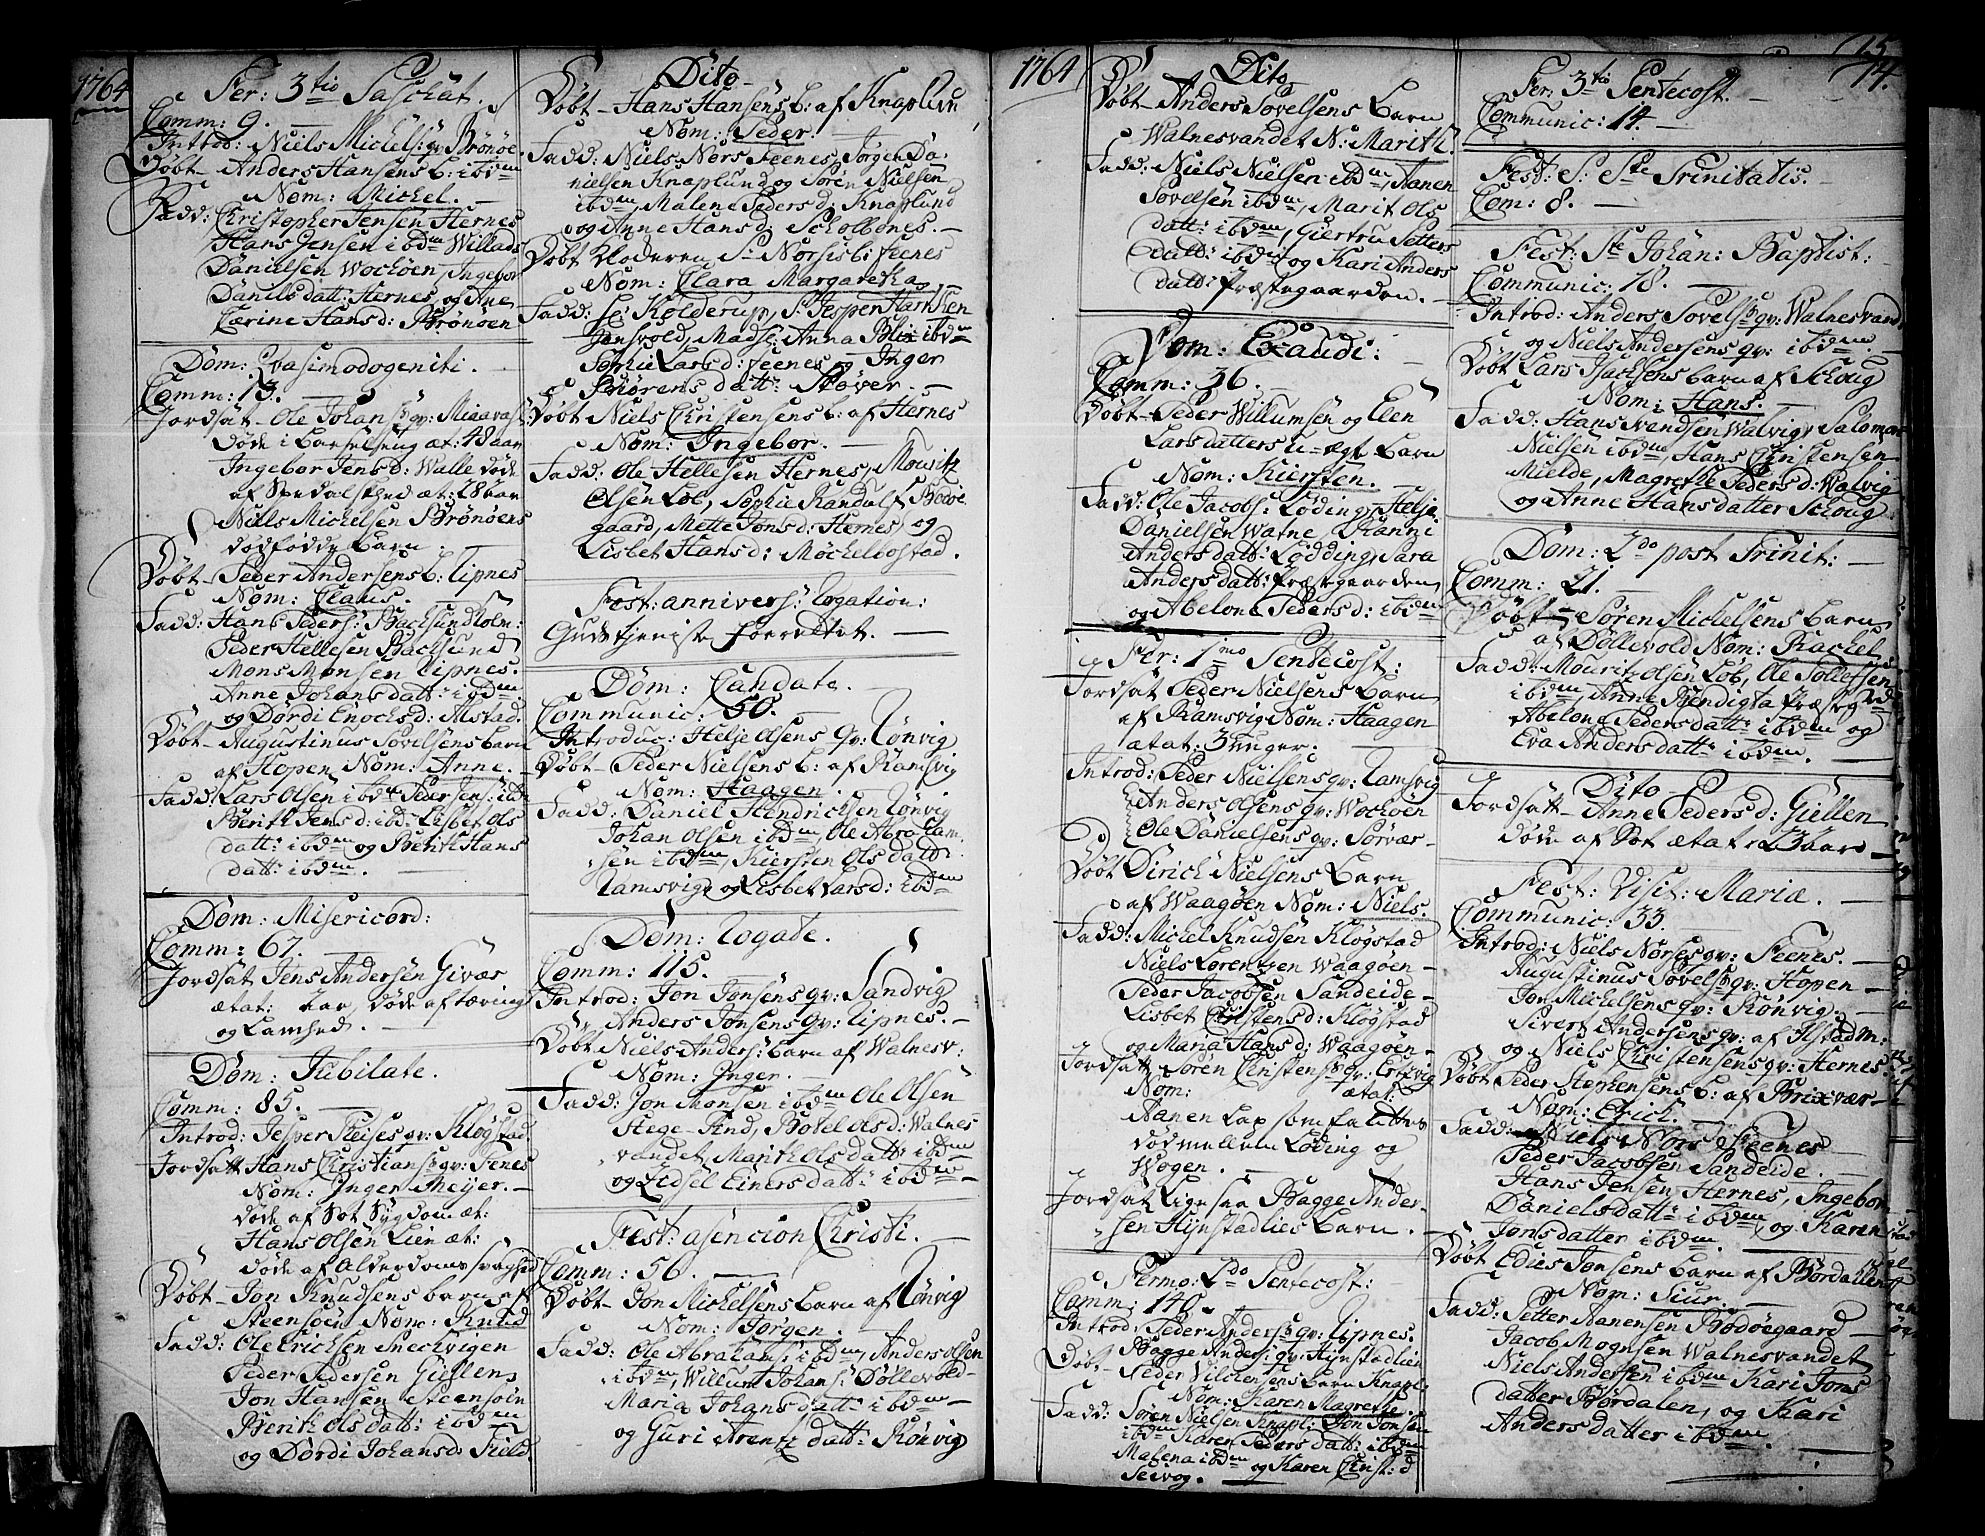 1764
Fer: 3tio Paschat.
Comm: 9.
Introd: Niels Michels: qv: Brönöe
Döbt Anders Hansens b: ibdm
Nom: Michel.
Fadd: Christopher Jensen Hernes
Hans Jensen ibdm Willads
Danielsen Wochöen, Ingebor
Daniels datt: Hernes, og Ane
Carine Hansd: Brönöen
Dom: Qvasimodogeniti.
Comm: 13.
Jordsat Ole Johans: qv:
döde i Barselseng æt: 48 aar
Ingebor Jensd: Walle döde
af Spedalskhed æt: 28 aar
Niels Michelsen Brönöens
dödfödde Barn
Döbt Peder Andersens b: Lipnes
Nom: Claus.
Fadd: Hans Peders: Bachsundholm:
Peder Hellesen Bachsund
Mons Monsen Lipnes.
Anne Johans datt: ibdm
og Dördi Enochsd: Alstad.
Döbt Augustinus Povelsens barn
af Hopen Nom: Anne.
Fadd: Lars Olsen ibdm Peder Jens: ibd
Berith Jensd: ibd: Lisbet Ols
datt: ibdm og Berith Hans
datt: ibdm.
Dom: Misericord:
Comm: 67.
Jordsat Jens Andersen Givær
ætat: aar, döde af Tæring
og Lamhed.
Dom: Jubilate.
Comm: 85.
Introd: Jesper qv: Klögstad.
Jordsatt Hans Christians: qv: Fenes
Nom: Inger Meijer.
döde af Sot Sygdom æt:
Hans Olsen Lien æt:
döde af Alderdoms svaghed
Döbt Jon Knudsens barn af
Steensöen Nom: Knud
Fadd: Ole Erichsen Snechvigen
Peder Pedersen Giellen,
Jon Hansen Steensöen
Berith Ols datt: ibdm
og Dördi Johansd: Field.
Dito
Döbt Hans Hansens b: af Knaplun
Nom: Peder
Fadd: Niels Nors Feenes, Jörgen Da-
nielsen Knaplund og Sören Nielsen
ibdm, Malene Pedersd: Knaplund
og Anne Hansd: Scholbönes.
Döbt Kloderen Sr Norsis b: Feenes
Nom: Clara Margaretha
Fadd: Hr: Kolderup, Sr Jespen Harnsen
Jensvold, Mads: Anna Blix ibdm
Sophie Larsd: Feenes og Inger
Sörens datt: Stöver.
Döbt Niels Christensens b: af Hernes
Nom: Ingebor.
Fadd: Ole Hellesen Hernes, Mouritz
Olsen Löb, Sophie Randulf Bodöe
gaard, Mette Jonsd: Hernes og
Lisbet Hansd: Möckelbostad.
Fest: annivers: Rogation:
Gudstjeniste forrettet.
Dom: Cantate.
Communic: 50.
Introduc: Helje Olsens qv: Rönvig
Döbt Peder Nielsens b: af Ramsvig
Nom: Haagen.
Fadd: Daniel Hendrichsen Rönvig
Johan Olsen ibdm, Ole Abraham-
sen ibdm, Kiersten Ols datt:
Ramsvig og Lisbet Larsd: ibdm
Dom: Rogate.
Comm: 115.
Introd: Jon Jonsens qv: Sandvig
Anders Jonsens qv: Lipnes.
Döbt Niels Anders: Barn af Walnesv:
Nom: Inger.
Fadd: Jon Monsen ibdm Ole Olsen
Hege-And, Botel Olsd: Walnes
vandet Marith Ols datt: ibdm
og Zidsel Einersdatt: ibdm
Fest: asencion Christi.
Comm: 56.
Döbt Jon Michelsens barn af Rönvig
Nom: Jörgen.
Fadd: Ole Abrahams: ibdm, Anders Olsen
ibdm, Willum Johans: Döllevold
Maria Johans datt: ibdm
og Guri Arentz datt: Rönvig
1764
Dito
Döbt Anders Povelsens Barn
Walnesvandet N: Marith.
Fadd: Niels Nielsen ibdm, Aanen
Povelsen ibdm, Marit Ols
datt: ibdm, Giertru Petters
datt: ibdm og Kari Anders
datt: Præstegaarden.
Dom: Exaudi:
Comm: 36.
Döbt Peder Willumsen og Elen
Larsdatters u-ægt Barn
Nom: Kiersten.
Fadd: Ole Jacobs: Löding, Helje
Danielsen Watne
Anders datt: Lödding, Sara
Anders datt: Præstgaarden,
og Abelone Pedersd: ibdm
Fer: 1mo Pentecost:
Jordsat Peder Nielsens Barn
af Ramsvig Nom: Haagen
ætat: 3 uger.
Introd: Peder Nielsens qv: Ramsvig
Anders Olsens qv: Wochöen
Ole Danielsens qv: Sörvær
Döbt Dirich Nielsens Barn
af Waagöen Nom: Niels.
Fadd: Michel Knudsen Klögstad
Niels Lorentzen Waagöen
Peder Jacobsen Sandeide
Lisbet Christensd: Klögstad
og Maria Hansd: Waagöen
Jordsatt Sören Christens: qv: Ertzvig
Nom: ætat:
Aanen Lap som fantes
död mellem Löding og
Wogen.
Jordsat Ligesaa Bagge Ander-
sen Hynstadlies Barn.
Fermo: 2do Pentecost:
Comm: 140.
Introd: Peder Anders: qv: Lipnes.
Bagge Anders: qv: Hynstadlien
Döbt Peder Barn Knapl:
Nom: Karen Magrethe.
Fadd: Sören Nielsen Knapl: Jon Jonsen
ibdm Karen Peders datt: ibdm
Malena ibdm og Karen Christ: d
Seivog.
15
14.
Fer: 3tio Pentecost.
Communic: 14.
Fest: S: Ste Trinitatis.
Com: 8.
Fest: Ste Johan: Baptist:
Communic: 18.
Introd: Anders Povels: qv: Walnesvand
og Niels Andersens qv: ibdm
Döbt Lars Isachsens barn af Schoug
Nom: Hans.
Fadd: Hans Ivandsen Walvig, Salomon
Nielsen ibdm, Hans Christensen
Mielde, Magrethe Pedersd: Walvig
og Anne Hansdatter Schoug
Dom: 2do post Trinit:
Comm: 21.
Döbt Sören Michelsens barn
af Döllevold Nom: Rachel
Fadd: Mouritz Olsen Löb, Ole Tollefsen
ibdm, Anne Bendigta Præstgrd
Abelone Peders datt: ibdm og
Eva Anders datt: ibdm.
Dito
Jordsatt Anne Pedersd: Giellen
döde af Sot ætat: 23 aar
Fest: Visit: Mariæ.
Communic: 33.
Introd: Niels Norses qv: Feenes.
Augustinus Povels: qv: Hopen
Jon Michelsens qv: Rönvig.
Sivert Andersens qv: af Alstadm:
og Niels Christensens qv: Hernes
Döbt Peder Stephensens b: af Brixvær
Nom: Erich.
Fadd: Niels Nors Feenes
Peder Jacobsen Sandeide.
Hans Jensen Hernes, Ingebor
Daniels datt: ibdm, og Karen
Jonsdatter ibdm.
Döbt Edies Jonsens barn af Bördallen
Nom: Siur.
Fadd: Petter Aanensen Bodöegaard
Jacob Mognsen Walnesvandet
Niels Andersen ibdm Kari Jons
datter Bördalen, og Kari
Anders datter ibdm.